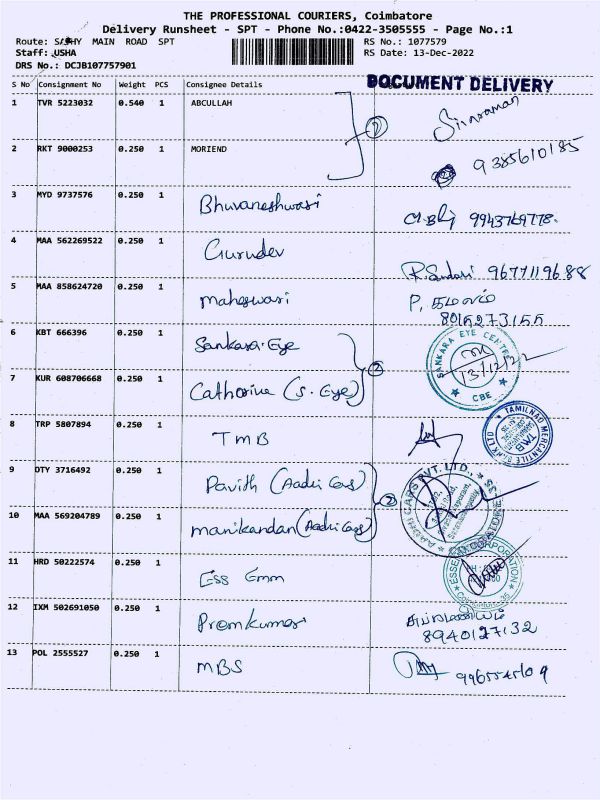 THE PROFESSIONAL COURIERS, Coimbatore
Delivery Runsheet - SPT - Phone No.:0422-3505555 - Page No.:1
Route: MAIN ROAD SPT
RS No.: 1077579
Staff: USHA
RS Date: 13-Dec-2022
DRS No.: DCJB107757901
DOCUMENT DELIVERY
S No Consignment No Weight PCS Consignee Details
1 TVR 5223032 0.540 1 ABCULLAH
2 RKT 9000253 0.250 1 MORIEND 9385610185
3 MYD 9737576 0.250 1 Bhuvaneshwari 9943769778.
4 MAA 562269522 0.250 1 Gurudev R. Sundari 9677119688
5 MAA 858624720 0.250 1 Maheswari P. கமலம்
8015273155
6 KBT 666396 0.250 1 Sankara Eye
SANKARA EYE CENTRE
13/12/22
CBE
7 KUR 608706668 0.250 1 Catherine (S. Eye) 2
8 TRP 5807894 0.250 1 TMB
TAMILNAD MERCANTILE BANK LTD
TMB
9 DTY 3716492 0.250 1 Pavith (Aadhi Cars)
AADHI CARS PVT. LTD., COIMBATORE - 35
10 MAA 569204789 0.250 1 Manikandan (Aadhi Cars) 2
11 HRD 50222574 0.250 1 Ess Emm
CORPORATION
12 IXM 502691050 0.250 1 Premkumar
8940127132
13 POL 2555527 0.250 1 MBS